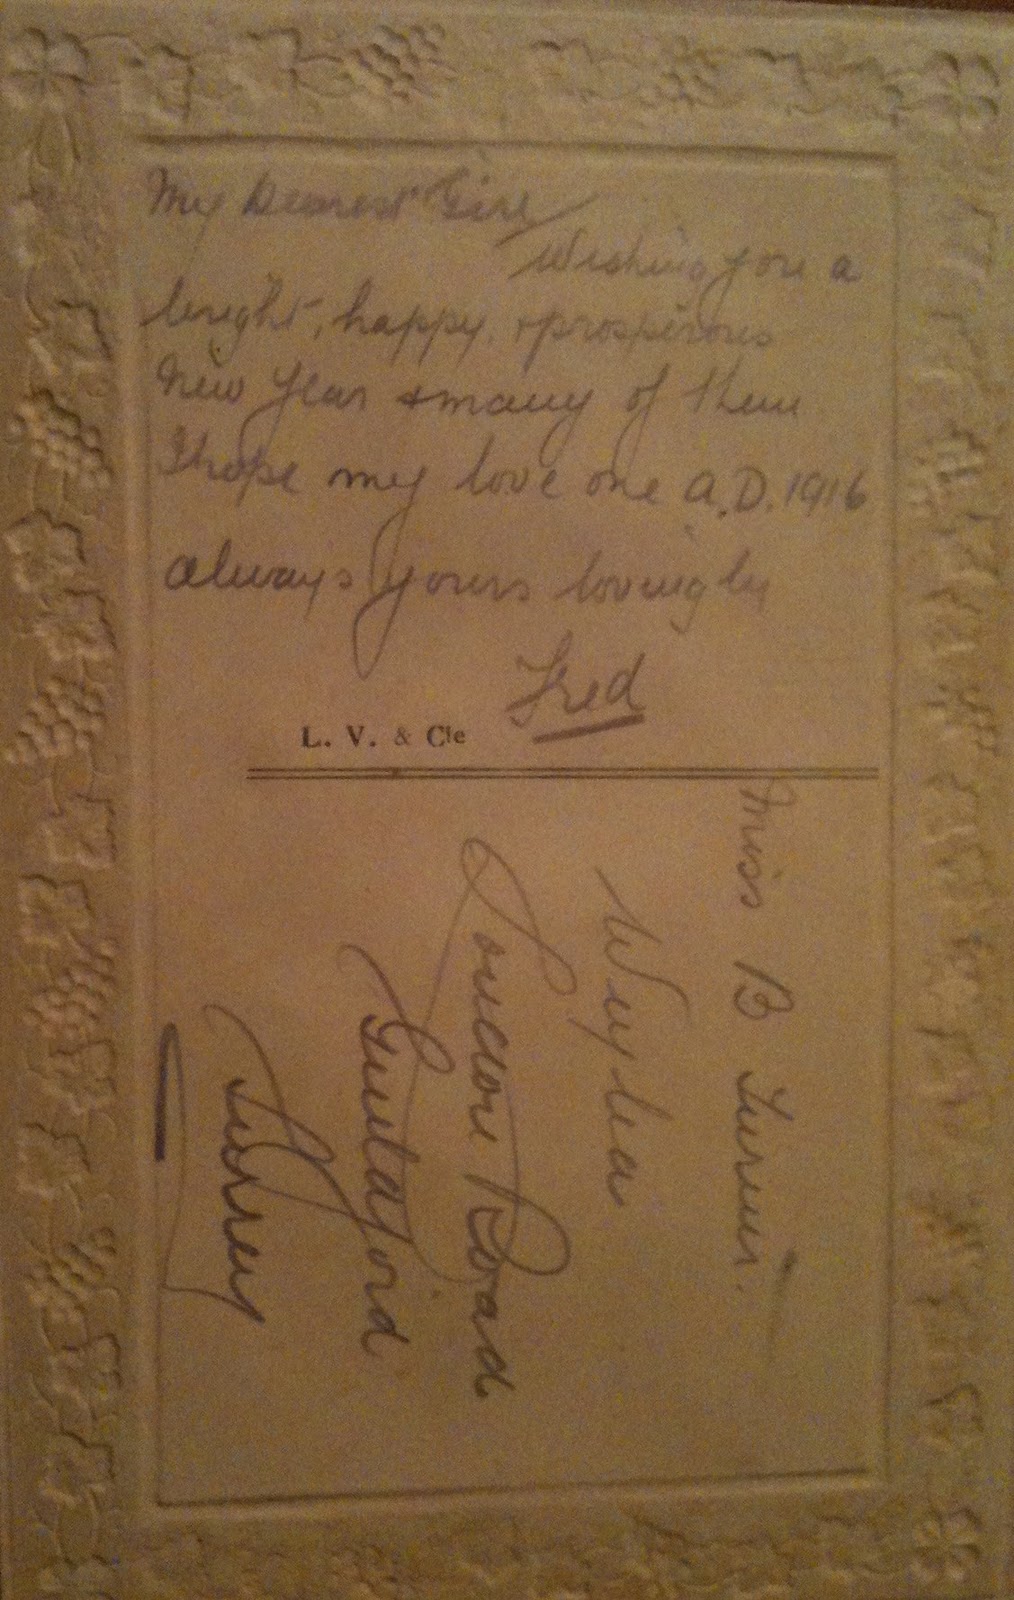 My Dearest Girl
Wishing you a
bright, happy, & prosperous
New Year & many of them
I hope my love one A.D. 1916
Always yours lovingly
Fred
L. V. & Cie
Miss B
Road
Guildford
Surrey